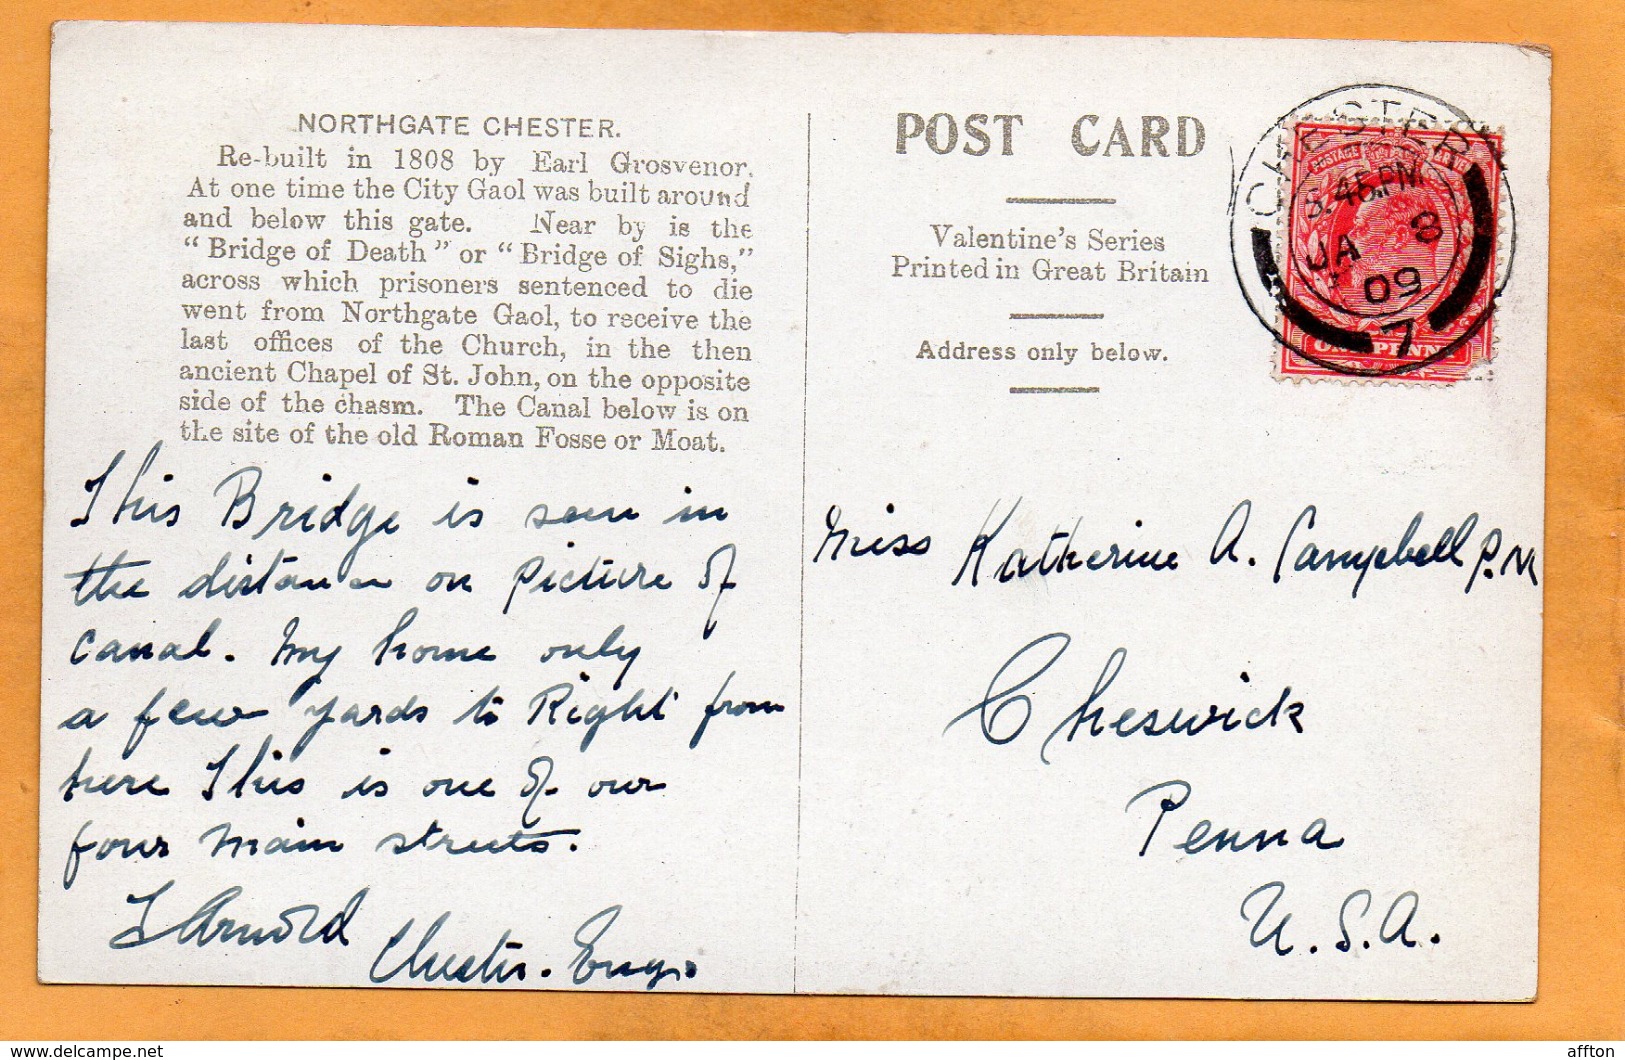 NORTHGATE CHESTER.
Re-built in 1808 by Earl Grosvenor.
At one time the City Gaol was built around
and below this gate. Near by is the
“Bridge of Death” or “Bridge of Sighs,”
across which prisoners sentenced to die
went from Northgate Gaol, to receive the
last offices of the Church, in the then
ancient Chapel of St. John, on the opposite
side of the chasm. The Canal below is on
the site of the old Roman Fosse or Moat.
This Bridge is seen in
the distance on picture of
canal. My home only
a few yards to Right from
here This is one of our
four main streets.
Arnold
Chester. Eng.
POST CARD
Valentine's Series
Printed in Great Britain
Address only below.
CHESTER
8.45 PM
JA 8
09
7
POSTAGE
ONE PENNY
Miss Katherine A. Campbell P.M
Cheswick
Penna
U.S.A.
www.delcampe.net
affton